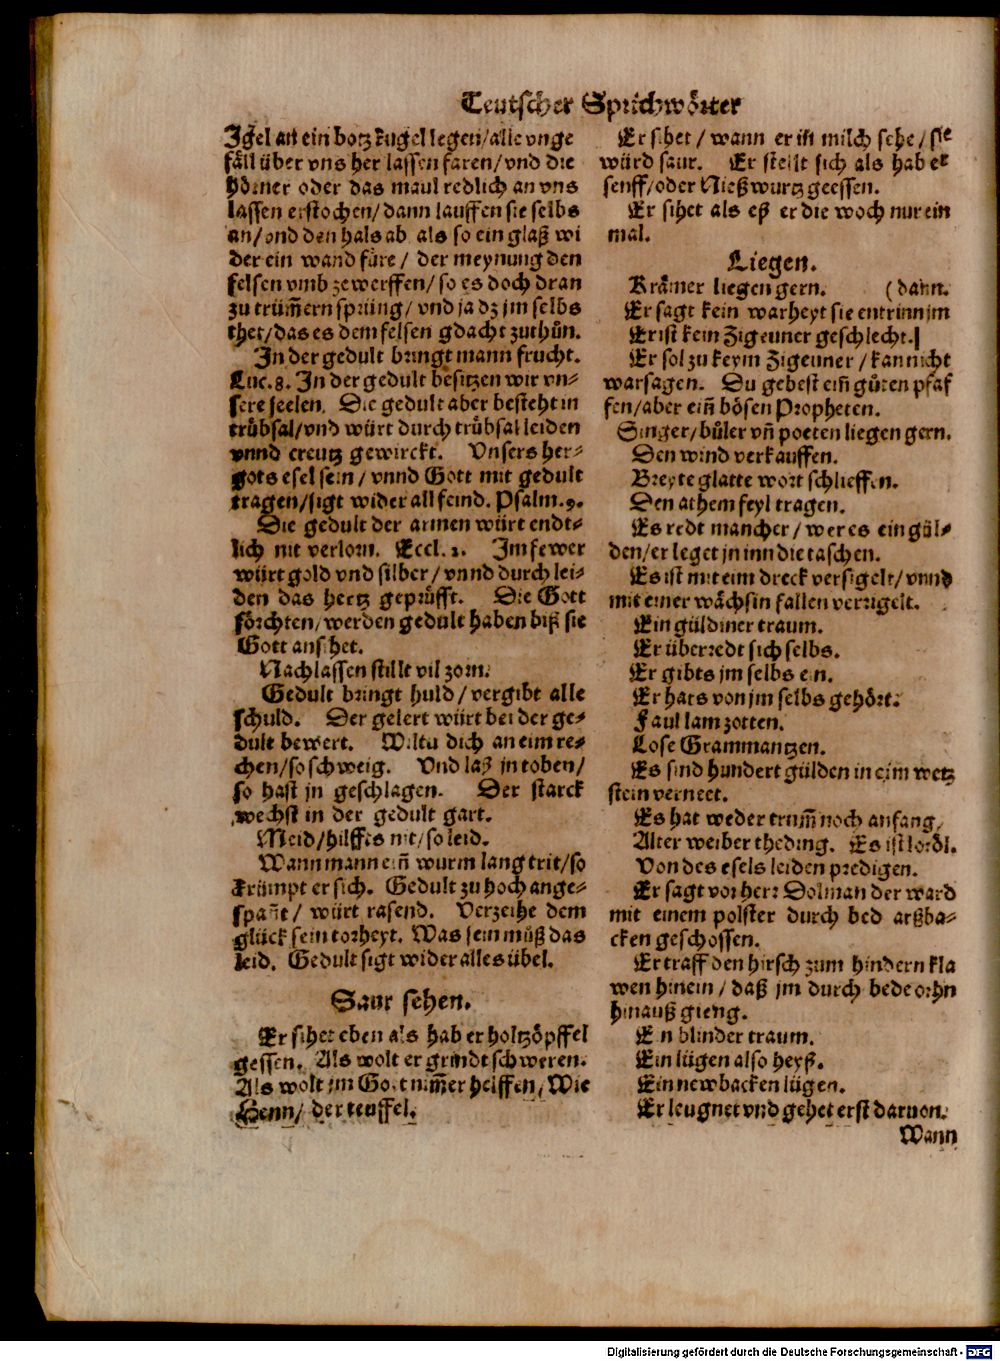 Teutscher Sprichwörter
Igel an ein botz kugel legen/alle vnge
fäll über vns her lassen faren/vnd die
hörner oder das maul redlich an vns
lassen erstochen/dann lauffen sie selbs
an/vnd den hals ab als so ein glaß wi
der ein wand füre/ der meynung den
felsen vmb zewerffen/so es doch dran
zu trüm̃ern spring/ vnd ja dz jm selbs
thet/das es dem felsen gdacht zuthůn.
In der gedult bringt mann frucht.
Luc.8. In der gedult besitzen wir vn-
sere seelen. Die gedult aber besteht in
trübsal/vnd würt durch trübsal leiden
vnnd creutz gewirckt. Vnsers her-
gots esel sein/ vnnd Gott mit gedult
tragen/sigt wider all feind. Psalm.9.
Die gedult der armen würt endt-
lich nit verlorn. Eccl.2. Im fewer
würt gold vnd silber/vnnd durch lei-
den das hertz geprüfft. Die Gott
förchten/werden gedult haben biß sie
Gott ansihet.
Nachlassen stillt vil zorn.
Gedult bringt huld/vergibt alle
schuld. Der gelert würt bei der ge-
dult bewert. Wiltu dich an eim re-
chen/so schweig. Vnd laß jn toben/
so hast jn geschlagen. Der starck
wechst in der gedult gart.
Meid/hilffts nit/so leid.
Wann mann eiñ wurm lang trit/so
krümpt er sich. Gedult zu hoch ange-
spañt/ würt rasend. Verzeihe dem
glück sein torheyt. Was sein můß das
leid. Gedult sigt wider alles übel.
Saur sehen.
Er sihet eben als hab er holtzöpffel
gessen. Als wolt er grindt schweren.
Als wolt jm Gott nim̃er helffen/ Wie
Henn/ der teuffel.
Er sihet/ wann er in milch sehe/ sie
würd saur. Er stellt sich als hab er
senff/oder Nießwurtz geessen.
Er sihet als eß er die woch nur ein
mal.
Liegen.
Krämer liegen gern. (dann.
Er sagt kein warheyt sie entrinn jm
Er ist kein Zigeuner geschlecht.
Er sol zu keym Zigeuner/ kan nicht
warsagen. Du gebest eiñ gůten pfaf
fen/aber eiñ bösen Propheten.
Singer/bůler vñ poeten liegen gern.
Den wind verkauffen.
Breyte glatte wort schlieffen.
Den athem feyl tragen.
Es redt mancher/ wer es ein gül-
den/er leget jn inn die taschen.
Es ist mit eim dreck versigelt/vnnd
mit einer wächsin fallen verrigelt.
Ein güldiner traum.
Er überredt sich selbs.
Er gibts jm selbs ein.
Er hats von jm selbs gehört.
Faul lam zotten.
Lose Grammantzen.
Es sind hundert gülden in eim wetz
stein verneet.
Es hat weder trum̃ noch anfang.
Alter weiber theding. Es ist lordl.
Von des esels leiden predigen.
Er sagt vor herr Dolman der ward
mit einem polster durch bed arßba-
cken geschossen.
Er traff den hirsch zum hindern kla
wen hinein/ daß jm durch bede orhn
hinauß gieng.
Ein blinder traum.
Ein lügen also heyß.
Ein newbacken lügen.
Er leugnet vnd gehet erst daruon.
Wann
Digitalisierung gefördert durch die Deutsche Forschungsgemeinschaft - DFG